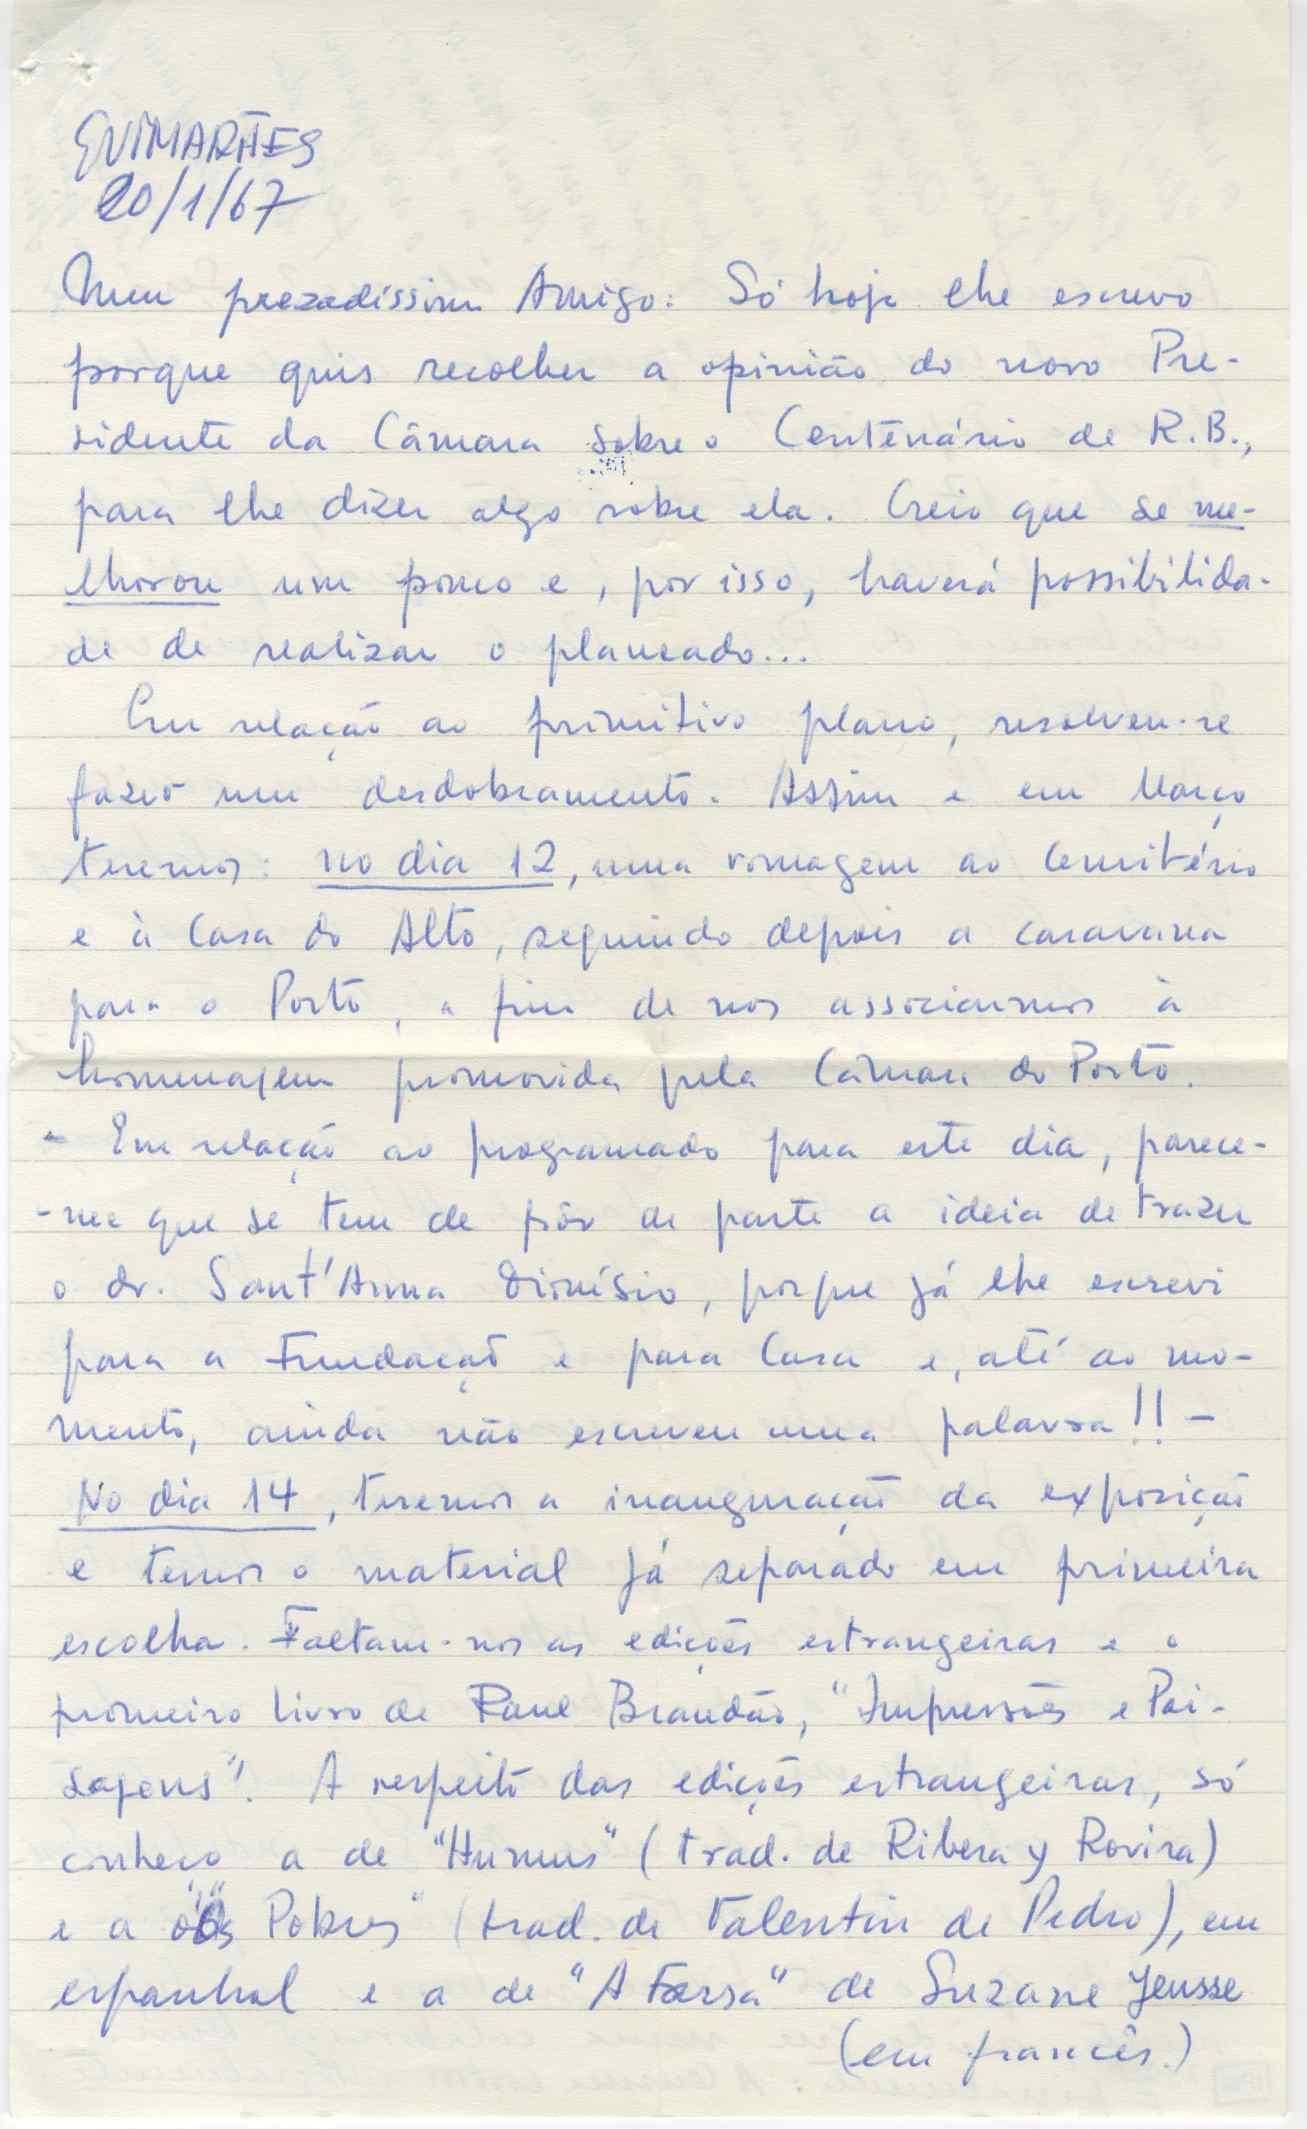 GUIMARÃES
20/1/67
Meu prezadíssimo Amigo: Só hoje lhe escrevo
porque quis recolher a opinião do novo Pre-
sidente da Câmara sobre o Centenário de R.B.,
para lhe dizer algo sobre ela. Creio que se me-
lhorou um pouco e, por isso, haverá possibilida-
de de realizar o planeado...
Em relação ao primitivo plano, resolveu-se
fazer um desdobramento. Assim e em Março
teremos: no dia 12, uma romagem ao Cemitério
e à Casa do Alto, seguindo depois a caravana
para o Porto, a fim de nos associarmos à
homenagem promovida pela Câmara do Porto.
- Em relação ao programado para este dia, parece-
-me que se tem de pôr de parte a ideia de trazer
o dr. Sant'Anna Dionísio, porque já lhe escrevi
para a Fundação e para Casa e, até ao mo-
mento, ainda não escreveu uma palavra!! -
No dia 14, teremos a inauguração da exposição
e temos o material já separado em primeira
escolha. Faltam-nos as edições estrangeiras e o
primeiro livro de Raul Brandão, "Impressões e Pai-
sagens". A respeito das edições estrangeiras, só
conheço a de "Humus" (trad. de Ribera y Rovira)
e a "Os Pobres" (trad. de Valentin de Pedro), em
espanhol e a de "A Farsa" de Suzane Jeusse
(em francês.)